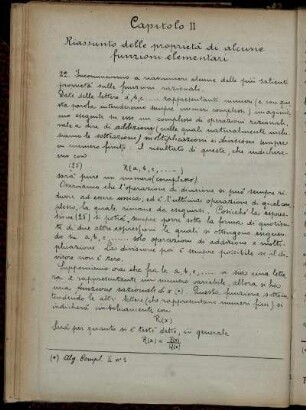 Capitolo II
Riassunto delle proprietà di alcune
funzioni elementari
22. Incominciamo a riassumere alcune delle più salienti
proprietà sulle funzioni razionali.
Date delle lettere a, b, c, .... rappresentanti numeri (e con questa
parola intenderemo sempre numeri complessi), immaginiamo
eseguite su esse un complesso di operazioni razionali,
vale a dire di addizioni (nelle quali naturalmente includiamo
le sottrazioni) moltiplicazioni e divisione sempre
in numero finito. Il resultato di queste, che indicheremo
con
(25) R(a, b, c, .....)
sarà pure un numero (complesso).
Osserviamo che l'operazione di divisione si può sempre ridurre
ad essere unica, ed è l'ultima operazione di quel complesso,
la quale rimane da eseguirsi. Cosicchè la espressione
(25) si potrà sempre porre sotto la forma di quoziente
di due altre espressioni le quali si ottengono eseguendo
su a, b, c, .... solo operazioni di addizione e moltiplicazione.
La divisione poi è sempre possibile se il divisore
non è zero.
Supponiamo ora che fra le a, b, c, .... vi sia una lettera
z rappresentante un numero variabile, allora si ha
una funzione razionale di z (*). Questa funzione, sottintendendo
le altre lettere (che rappresentano numeri fissi) si
indicherà simbolicamente con
R(z)
Sarà per quanto si è testè detto, in generale
R(z) =
(*) Alg. Compl. II n° 5